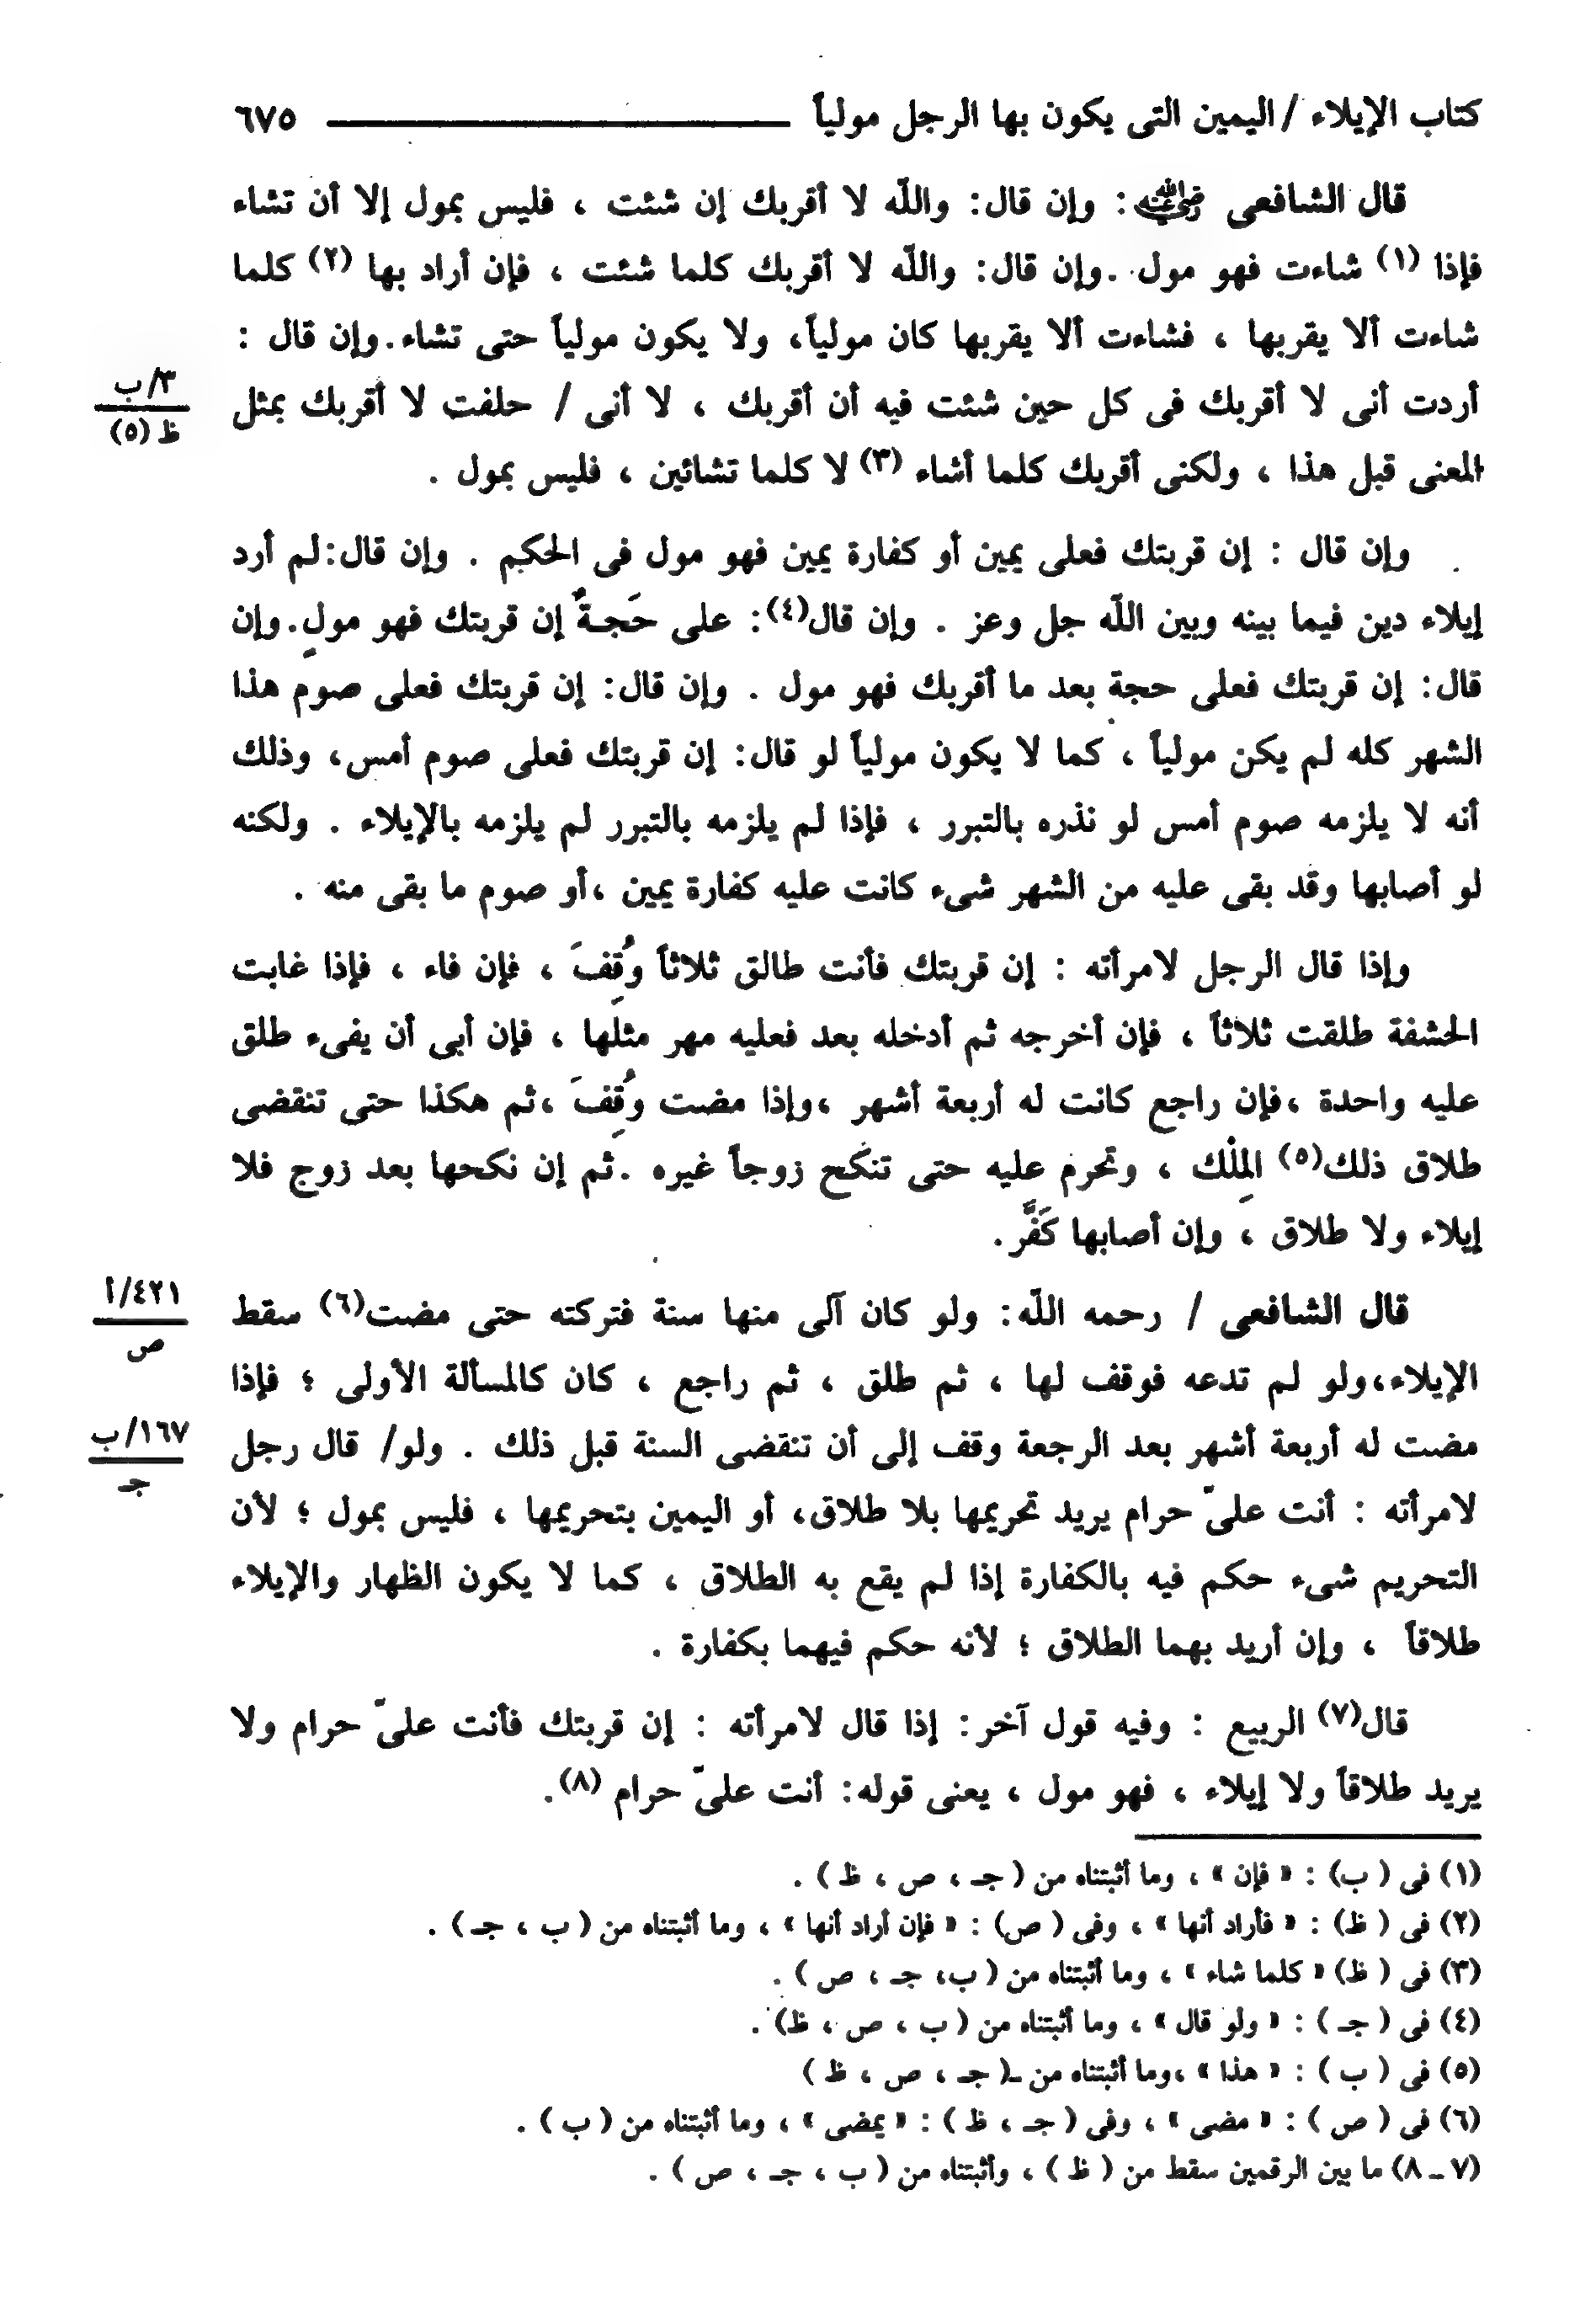 كتاب الإيلاء / اليمين التى يكون بها الرجل مولياً ــــــــــ ٦٧٥
قال الشافعى رضي الله عنه : وإن قال: واللّه لا أقربك إن شئت ، فليس بمول إلا أن تشاء
فإذا (١) شاءت فهو مول .وإن قال: واللّه لا أقربك كلما شئت ، فإن أراد بها (٢) كلما
شاءت ألا يقربها ، فشاءت ألا يقربها كان مولياً، ولا يكون مولياً حتى تشاء.وإن قال :
أردت أنى لا أقربك فى كل حين شئت فيه أن أقربك ، لا أنى / حلفت لا أقربك بمثل
٣/ب
ظ (٥)
المعنى قبل هذا ، ولكنى أقربك كلما أشاء (٣) لا كلما تشائين ، فليس بمول .
وإن قال : إن قربتك فعلى يمين أو كفارة يمين فهو مول فى الحكم . وإن قال:لم أرد
إيلاء دين فيما بينه وبين اللّه جل وعز . وإن قال(٤): على حَجةٌ إن قربتك فهو مولٍ.وإن
قال: إن قربتك فعلى حجة بعد ما أقربك فهو مول . وإن قال: إن قربتك فعلى صوم هذا
الشهر كله لم يكن مولياً ، كما لا يكون مولياً لو قال: إن قربتك فعلى صوم أمس، وذلك
أنه لا يلزمه صوم أمس لو نذره بالتبرر ، فإذا لم يلزمه بالتبرر لم يلزمه بالإيلاء . ولكنه
لو أصابها وقد بقى عليه من الشهر شىء كانت عليه كفارة يمين ،أو صوم ما بقى منه .
وإذا قال الرجل لامرأته : إن قربتك فأنت طالق ثلاثاً وُقِفَ ، فإن فاء ، فإذا غابت
الحشفة طلقت ثلاثاً ، فإن أخرجه ثم أدخله بعد فعليه مهر مثلها ، فإن أبى أن يفىء طلق
عليه واحدة ،فإن راجع كانت له أربعة أشهر ،وإذا مضت وُقِفَ ،ثم هكذا حتى تنقضى
طلاق ذلك(٥) المِلْك ، وتحرم عليه حتى تنكح زوجاً غيره .ثم إن نكحها بعد زوج فلا
إيلاء ولا طلاق ، وإن أصابها كَفَّر.
قال الشافعى / رحمه اللّه: ولو كان آلى منها سنة فتركته حتى مضت(٦) سقط
٤٢١/أ
ص
الإيلاء،ولو لم تدعه فوقف لها ، ثم طلق ، ثم راجع ، كان كالمسألة الأولى ؛ فإذا
مضت له أربعة أشهر بعد الرجعة وقف إلى أن تنقضى السنة قبل ذلك . ولو/ قال رجل
١٦٧/ب
جـ
لامرأته : أنت علىّ حرام يريد تحريمها بلا طلاق، أو اليمين بتحريمها ، فليس بمول ؛ لأن
التحريم شىء حكم فيه بالكفارة إذا لم يقع به الطلاق ، كما لا يكون الظهار والإيلاء
طلاقاً ، وإن أريد بهما الطلاق ؛ لأنه حكم فيهما بكفارة .
قال(٧) الربيع : وفيه قول آخر: إذا قال لامرأته : إن قربتك فأنت علىّ حرام ولا
يريد طلاقاً ولا إيلاء ، فهو مول ، يعنى قوله: أنت علىّ حرام (٨).
(١) فى ( ب) : « فإن » ، وما أثبتناه من ( جـ ، ص ، ظ ) .
(٢) فى ( ظ) : « فأراد أنها » ، وفى ( ص) : « فإن أراد أنها » ، وما أثبتناه من ( ب ، جـ ) .
(٣) فى ( ظ) « كلما شاء » ، وما أثبتناه من ( ب، جـ ، ص ) .
(٤) فى ( جـ ) : « ولو قال » ، وما أثبتناه من ( ب ، ص ، ظ) .
(٥) فى ( ب ) : « هذا » ،وما أثبتناه من ـ( جـ ، ص ، ظ )
(٦) فى ( ص ) : « مضى » ، وفى ( جـ ، ظ ) : « يمضى » ، وما أثبتناه من ( ب ) .
(٧ ـ ٨) ما بين الرقمين سقط من ( ظ ) ، وأثبتناه من ( ب ، جـ ، ص ) .